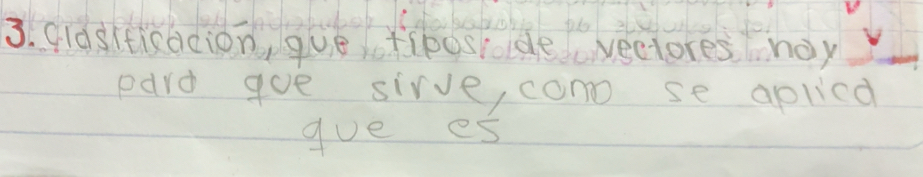 3. clasificación, que tipos de vectores hay
para que sirve, como se aplica
que es